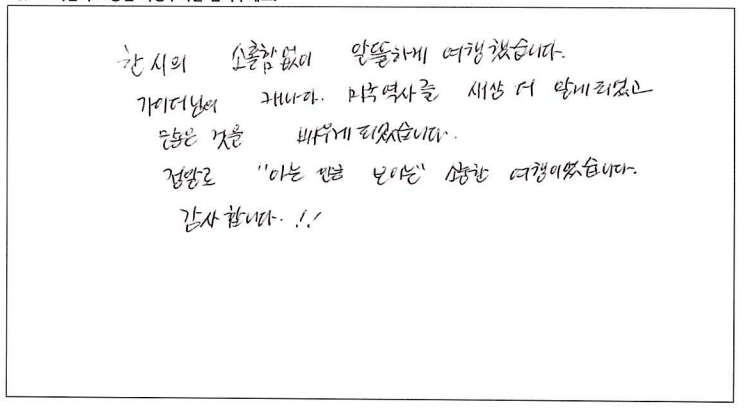 한시의 소홀함없이 알뜰하게 여행했습니다.
가이더님의 캐나다. 미국역사를 새삼 더 알게되었고
많은 것을 배우게되었습니다.
정말로 "아는 만큼 보이는" 소중한 여행이었습니다.
감사합니다. !!